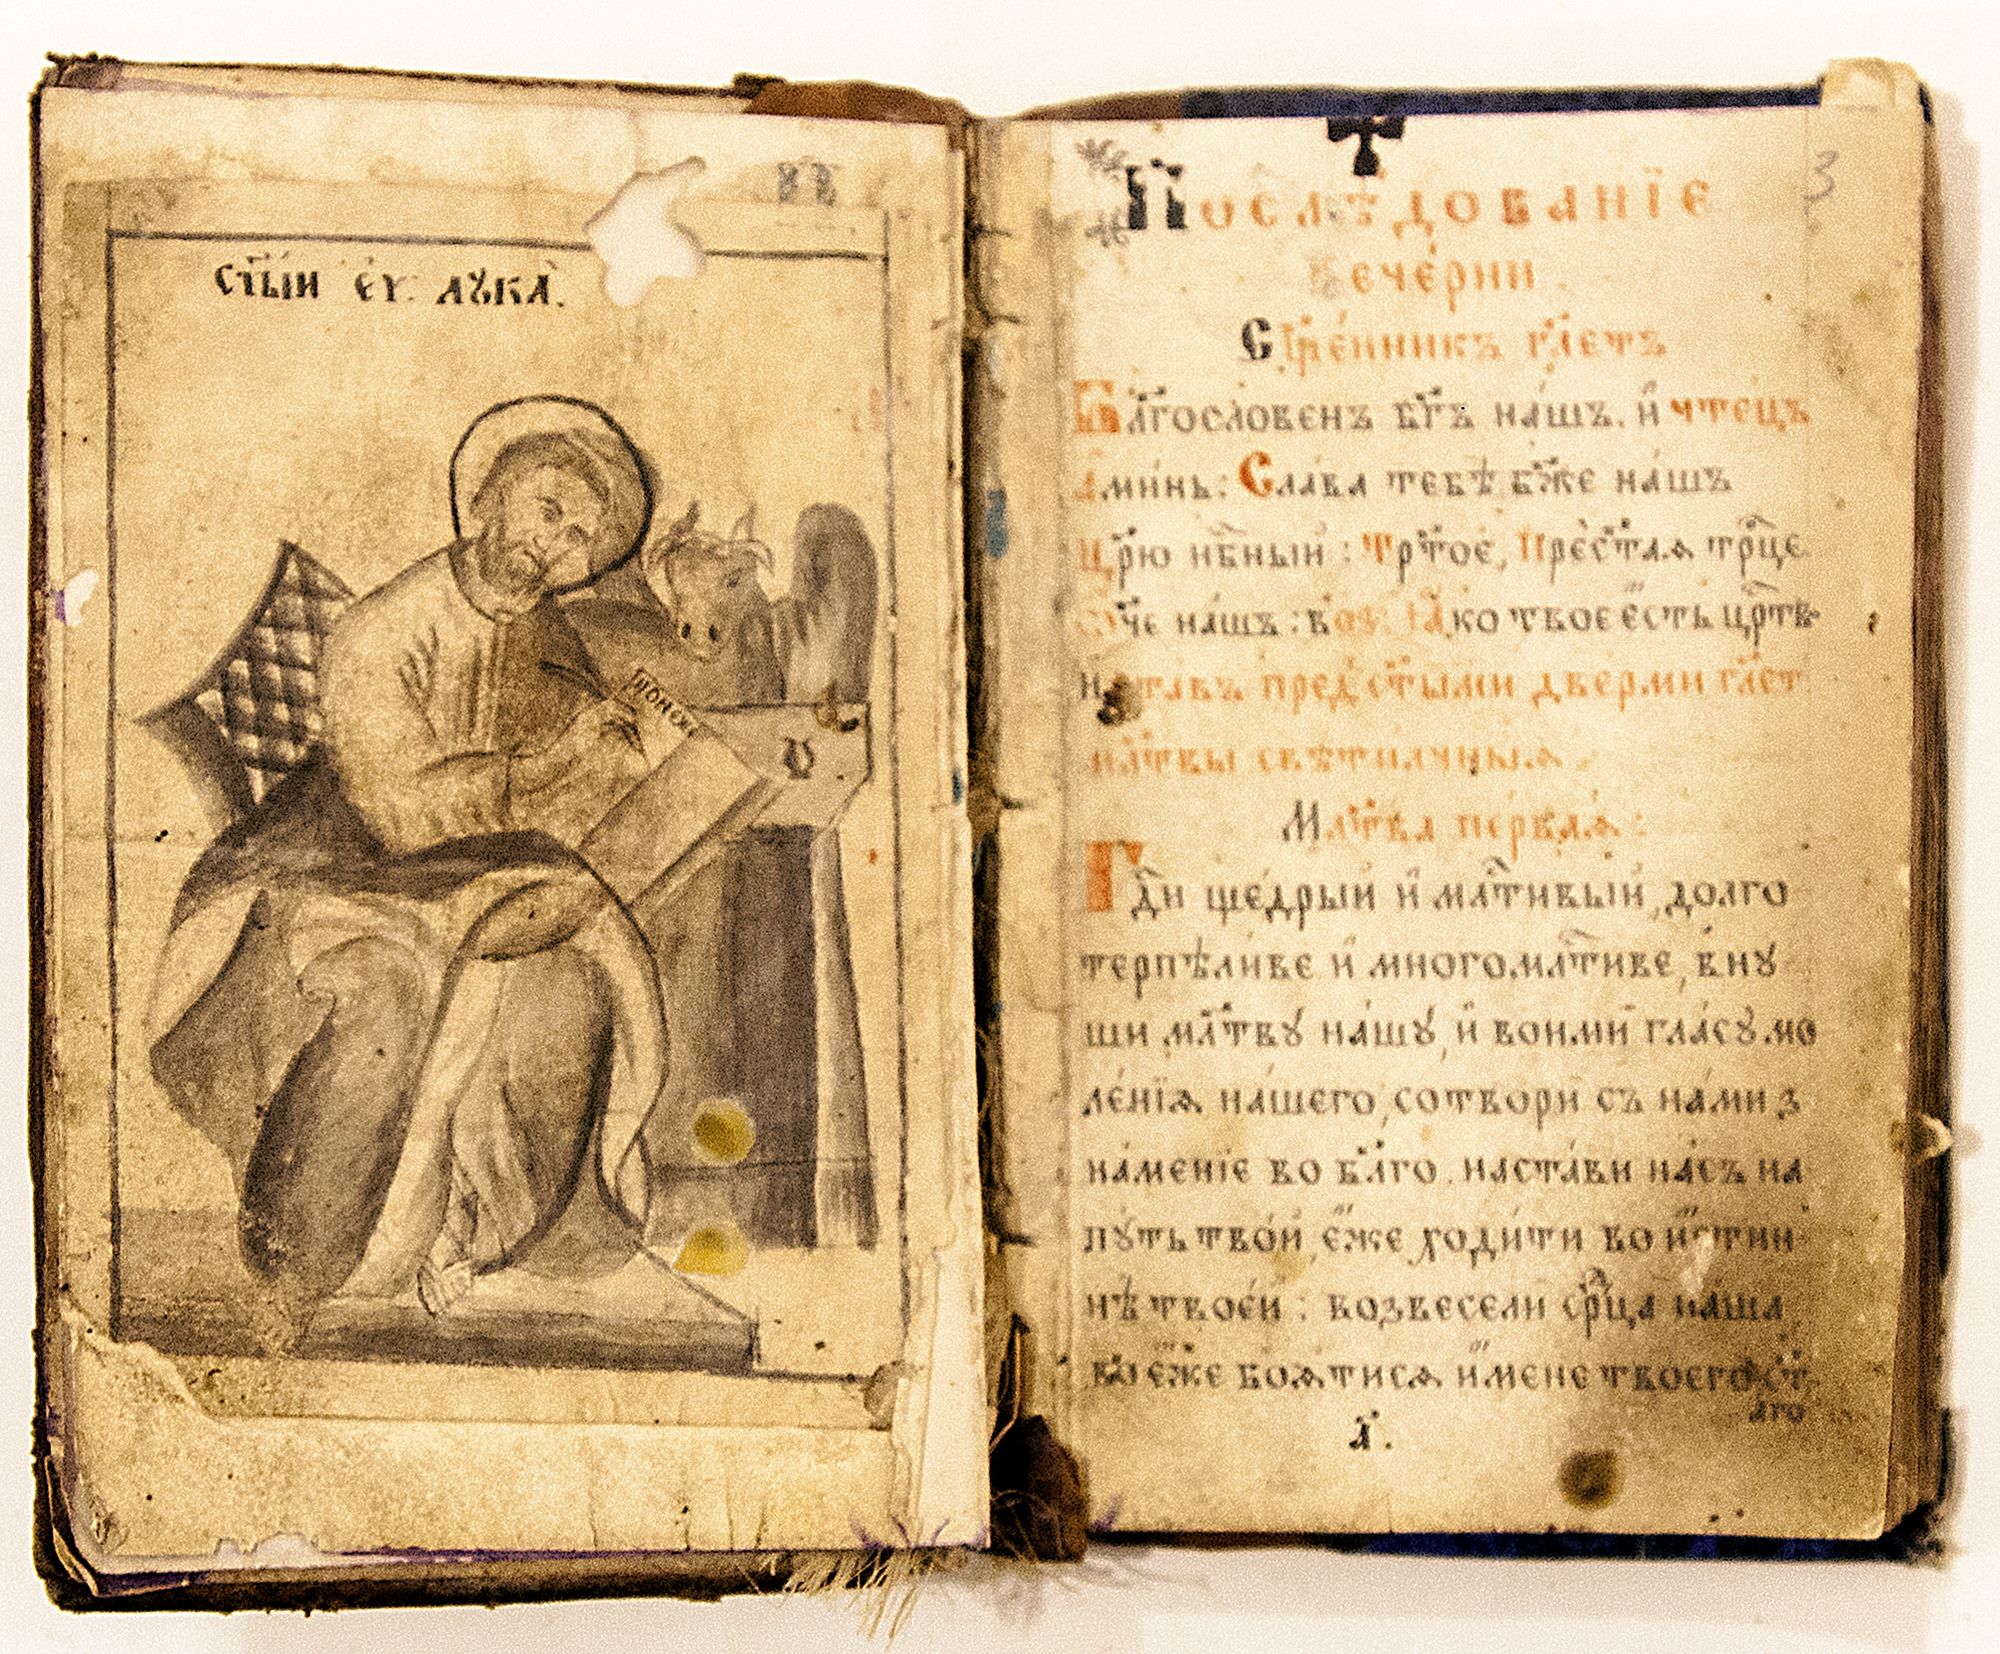 ст҃ый єѵ: лꙋка̀.
понеже
3
Послѣ́дованїе
вече́рни.
Сщ҃е́нникъ гл҃етъ
Бл҃гослове́нъ бг҃ъ на́шъ. и҆ чте́цъ
а҆ми́нь: Сла́ва тебѣ̀ бж҃е на́шъ
цр҃ю нбⷭ҇ный: трⷭ҇то́е, прест҃а́ѧ трⷪ҇це
ѻ҆́ч҃е на́шъ: Ꙗ҆́ко твоѐ є҆́сть црⷭ҇тв
пред̾ ст҃ы́ми дверми гл҃етъ
мл҃твы свѣти́лчныѧ.
Мл҃тва пе́рваѧ:
Гдⷭ҇и ще́дрый и҆ млⷭ҇тивый, долго
терпѣли́ве и҆ многомлⷭ҇тиве, внꙋ
ши́ мл҃твꙋ на́шꙋ, и҆ вонми̂ гла́сꙋ мо
ле́нїѧ на́шего, сотвори̂ съ на́ми з
на́менїе во бл҃го. наста́ви на́съ на
пꙋ́ть тво́й, є҆́же ходи́ти во и҆́стин
нѣ твое́й: возвесели̂ срⷣца на́ша
во є҆́же боѧ́тисѧ и҆́мене твоегѡ̀ ст҃
аго
а҃.